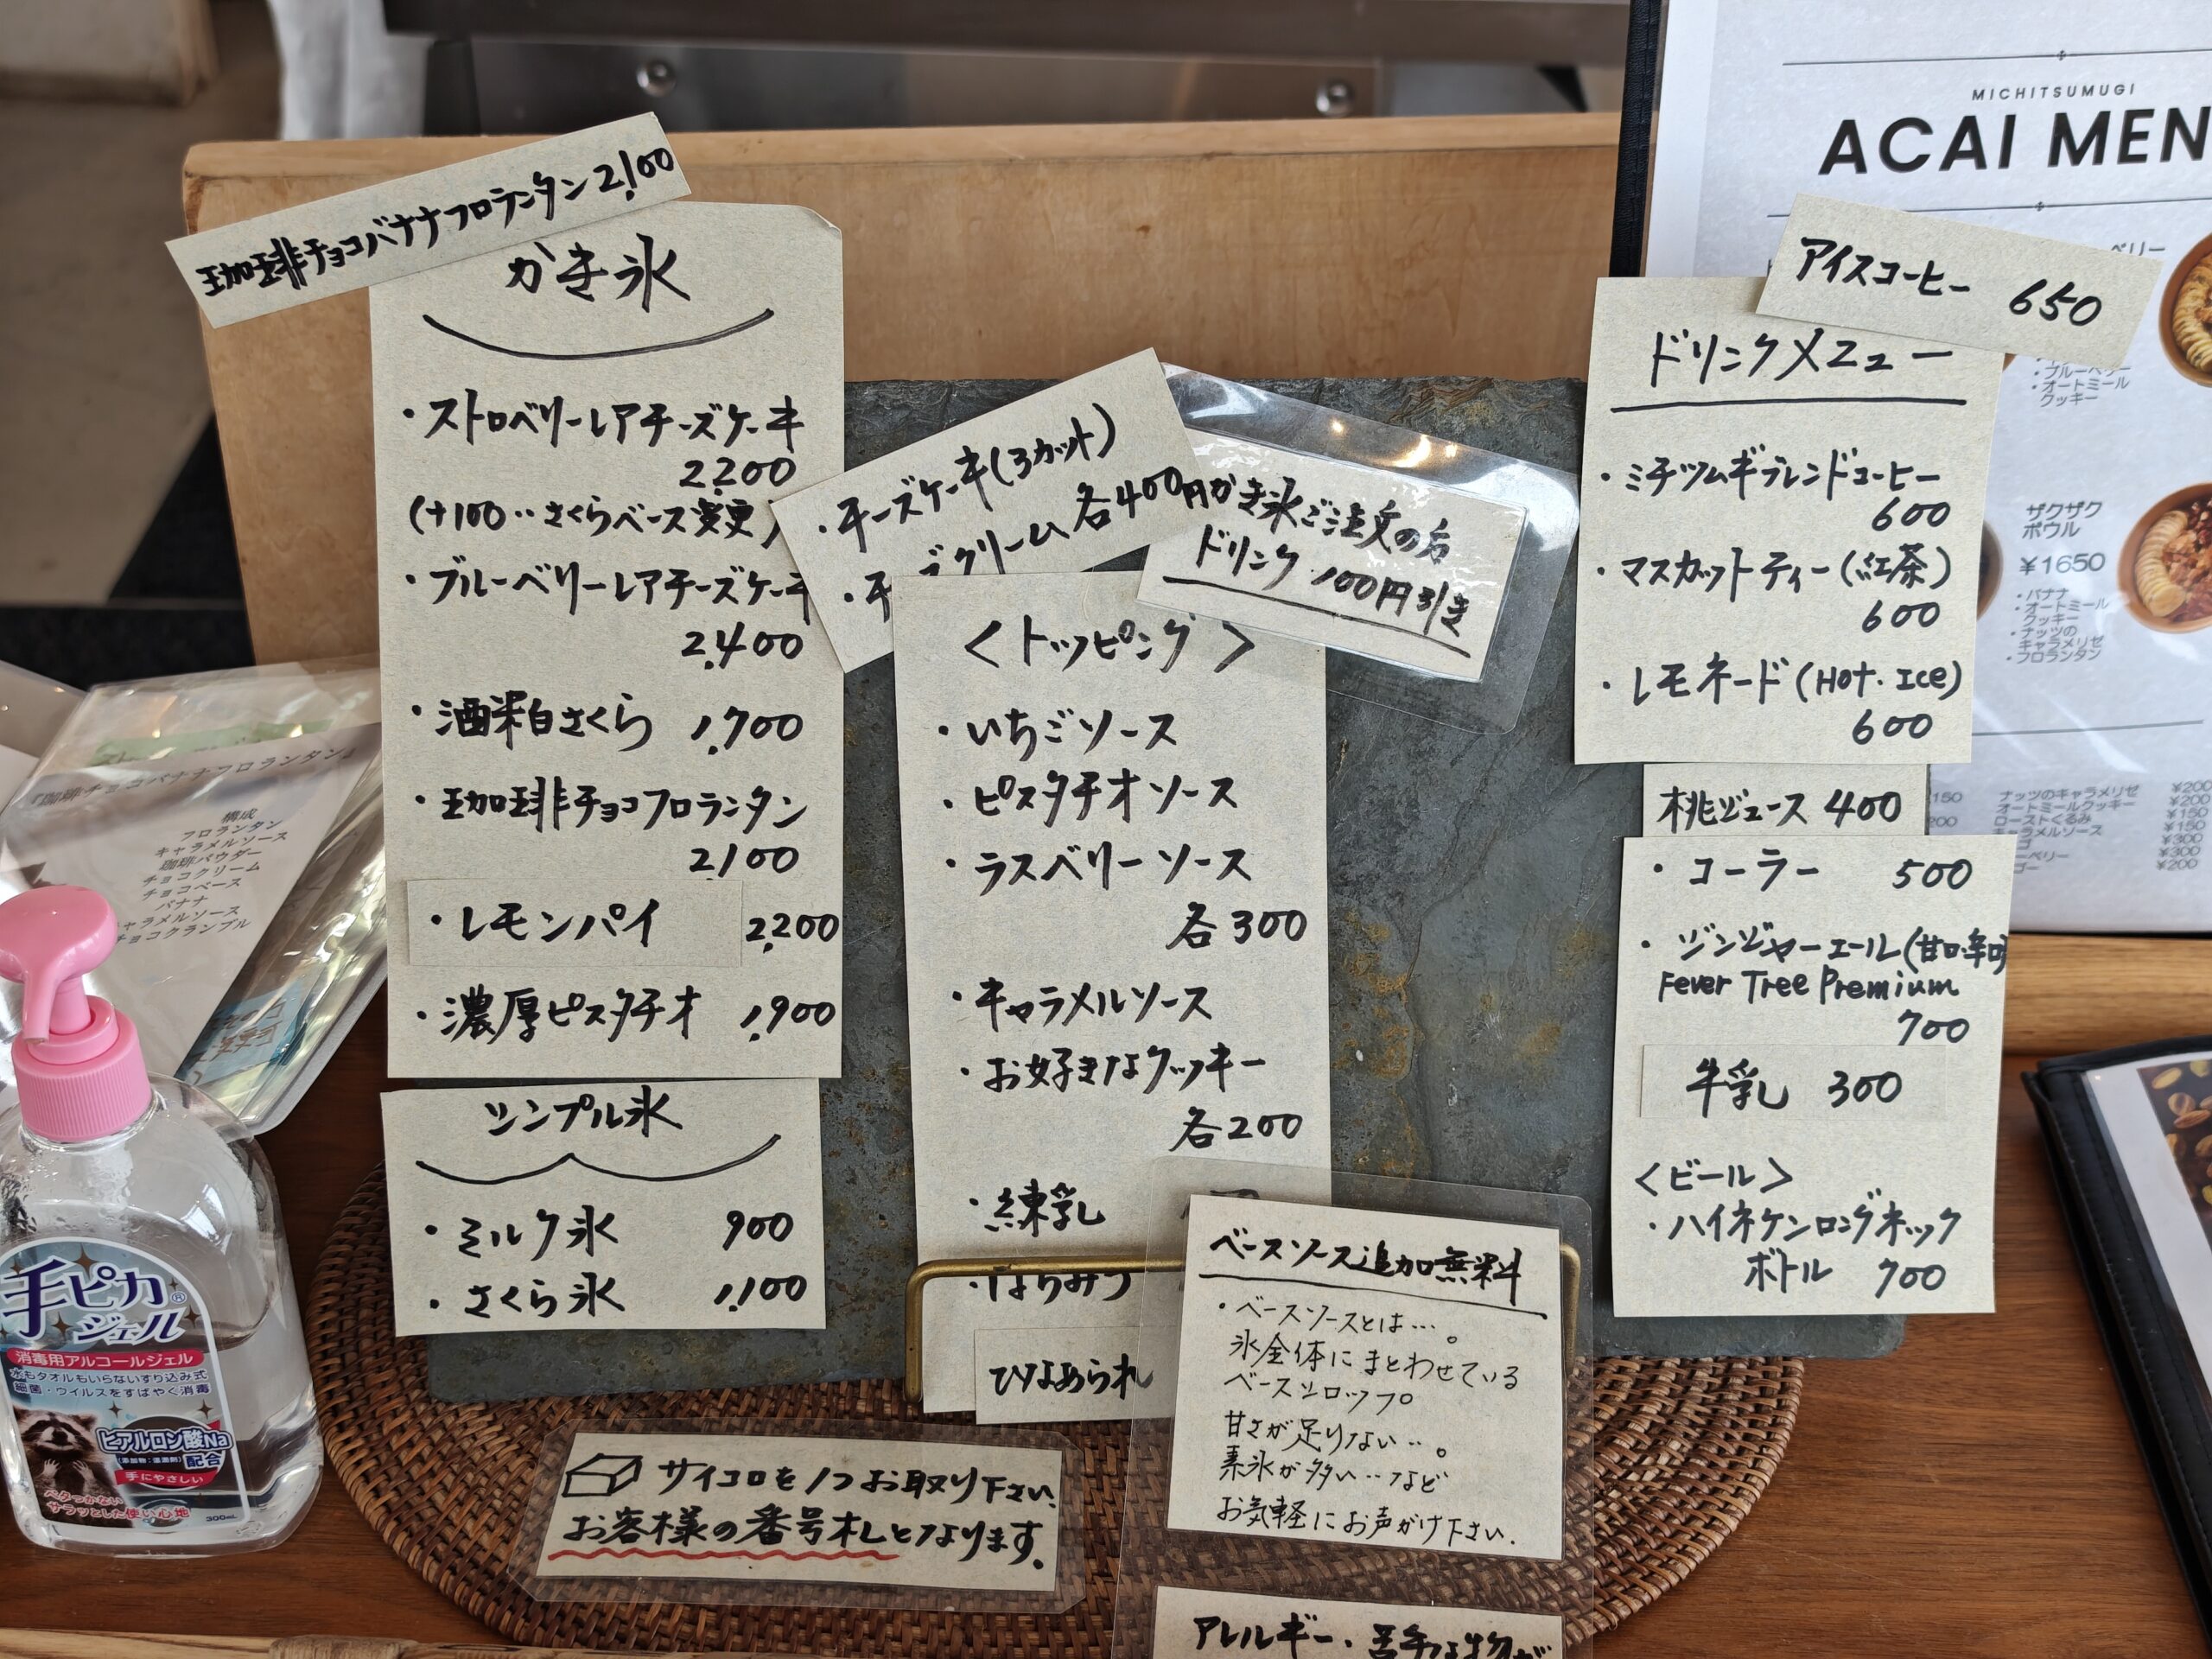 珈琲チョコバナナフロランタン 2,100
かき氷
・ストロベリーレアチーズケーキ
2,200
(+100‥さくらベース変更)
・ブルーベリーレアチーズケーキ
2,400
・酒粕さくら 1,700
・珈琲チョコフロランタン
2,100
・レモンパイ 2,200
・濃厚ピスタチオ 1,900
シンプル氷
・ミルク氷 900
・さくら氷 1,100
・チーズケーキ(3カット)
・チーズクリーム 各400円
かき氷ご注文の方
ドリンク100円引き
<トッピング>
・いちごソース
・ピスタチオソース
・ラズベリーソース
各300
・キャラメルソース
・お好きなクッキー
各200
・練乳
・はちみつ
ひなあられ
ベースソース追加無料
・ベースソースとは…。
氷全体にまとわせている
ベースシロップ。
甘さが足りない‥。
素氷が多い‥など
お気軽にお声がけ下さい.
サイコロを1つお取り下さい.
お客様の番号札となります.
アレルギー・苦手な物が
アイスコーヒー 650
ドリンクメニュー
・ミチツムギブレンドコーヒー
600
・マスカットティー(紅茶)
600
・レモネード(Hot・Ice)
600
桃ジュース 400
・コーラー 500
・ジンジャーエール(甘口・辛口)
Fever Tree Premium
700
牛乳 300
<ビール>
・ハイネケンロングネック
ボトル 700
MICHITSUMUGI
ACAI MEN
ベリー
・ブルーベリー
・オートミール
クッキー
ザクザク
ボウル
¥1650
・バナナ
・オートミール
クッキー
・ナッツの
キャラメリゼ
・フロランタン
ナッツのキャラメリゼ ¥200
オートミールクッキー ¥200
ローストくるみ ¥150
キャラメルソース ¥150
¥300
¥300
¥200
『珈琲チョコバナナフロランタン』
構成
フロランタン
キャラメルソース
珈琲パウダー
チョコクリーム
チョコベース
バナナ
キャラメルソース
チョコクランブル
手ピカ®
ジェル
消毒用アルコールジェル
水もタオルもいらないすり込み式
細菌・ウイルスをすばやく消毒
ヒアルロン酸Na
(添加物:湿潤剤) 配合
手にやさしい
ベタつかない
サラッとした使い心地
300mL